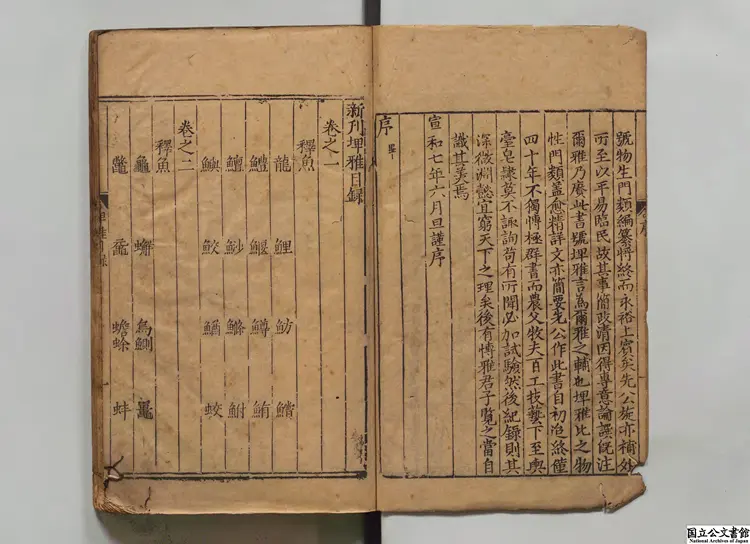 號物生門類編纂將終而永裕上賓矣先公旋亦補外
所至以平易臨民故其事簡政清因得專意論譔既注
爾雅乃賡此書號埤雅言為爾雅之輔也埤雅比之物
性門類蓋愈精詳文亦簡要先公作此書自初迨終僅
四十年不獨博極群書而農父牧夫百工技藝下至輿
臺皂隸莫不諏詢苟有所聞必加試驗然後紀錄則其
深微淵懿宜窮天下之理矣後有博雅君子覽之當自
識其美焉
宣和七年六月旦謹序
序畢
新刊埤雅目錄
卷之一
釋魚
龍 鯉 魴 鱨
鱧 鰋 鱒 鮪
鱣 魦 鰷 鮒
鱮 鮫 鰌 蛟
卷之二
釋魚
龜 蠏 烏鰂 鼉
鼈 黿 蟾蜍 蚌
国立公文書館
National Archives of Japan